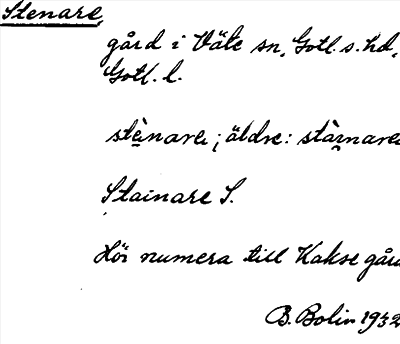 Stenare,
gård i Väte sn, Gotl. s. hd,
Gotl. l.
stènare; äldre: stàinare
Stainare S.
Hör numera till Kakse gård
B. Bolin 1932